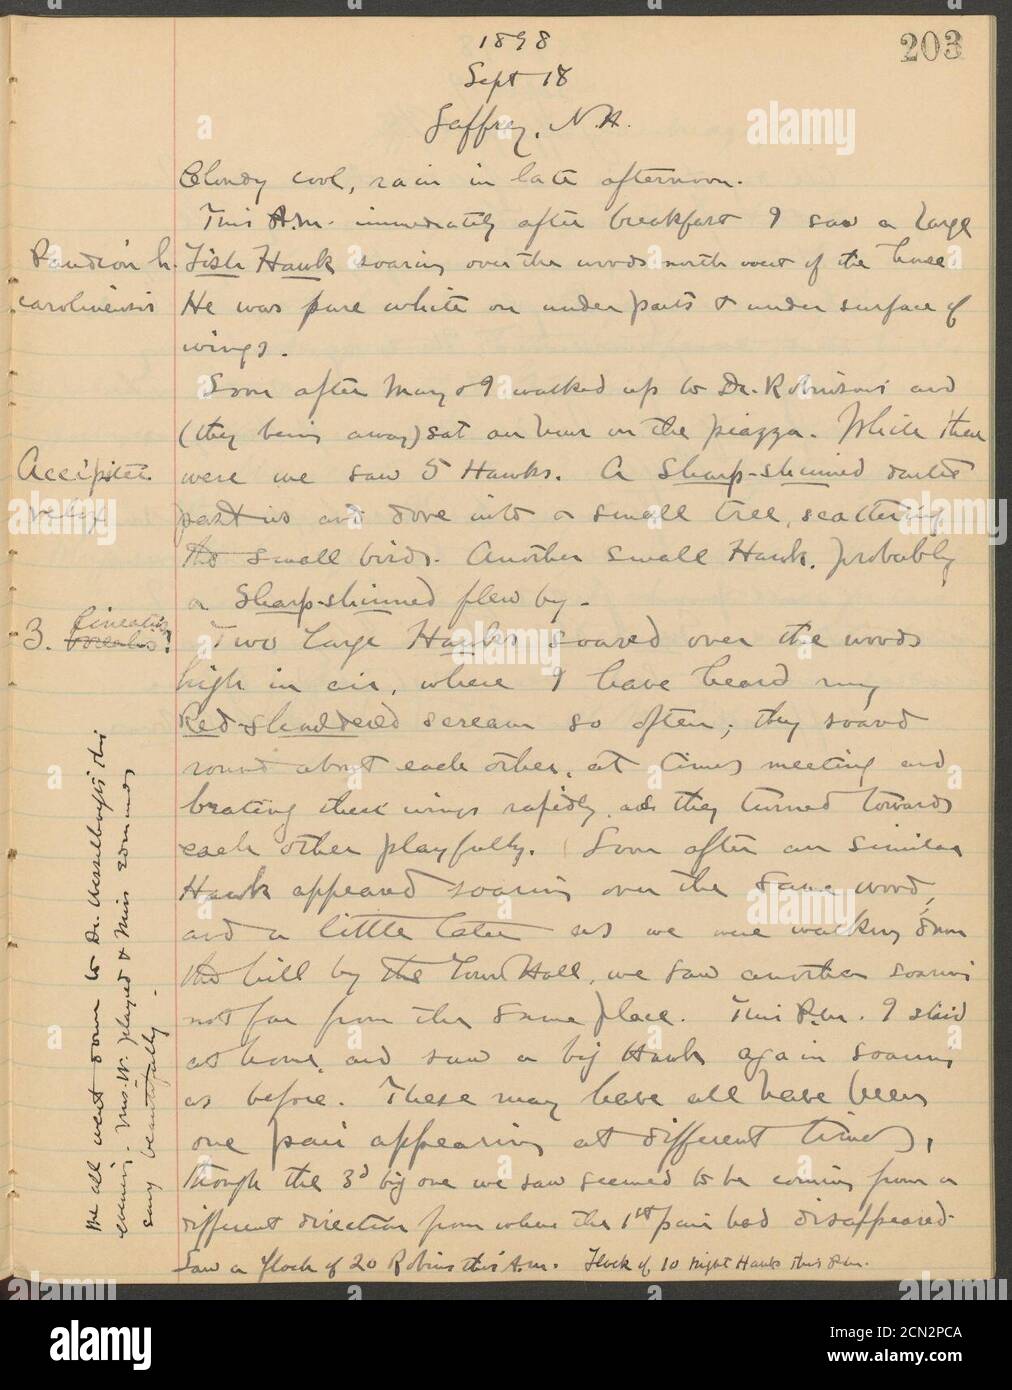 203
1898
Sept 18
Jaffrey, N.H.
Cloudy cool, rain in late afternoon.
This A.m. immediately after breakfast I saw a large
Pandion h. carolinensis
Fish Hawk soaring over the woods north west of the house
He was pure white on under parts & under surface of
wings.
Soon after May & I walked up to Dr. Robinson's and
(they being away) sat an hour on the piazza. While there
Accipiter velox
were we saw 5 Hawks. A Sharp-shinned darted
past us and dove into a small tree, scattering
the small birds. Another small Hawk, probably
a Sharp-shinned flew by.
3. lineatus borealis?
Two large Hawks soared over the woods
high in air, where I have heard my
Red-shouldered scream so often; they soared
round about each other, at times meeting and
beating their wings rapidly, as they turned towards
each other playfully. Soon after a similar
Hawk appeared soaring over the same wood,
and a little later as we were walking down
the hill by the Town Hall, we saw another soaring
not far from the same place. This P.m. I staid
at home, and saw a big Hawk again soaring
as before. These may have all have been
one pair appearing at different times,
though the 3d big one we saw seemed to be coming from a
different direction from where the 1st pair had disappeared.
Saw a flock of 20 Robins this A.m. Flock of 10 Night Hawks this P.m.
We all went down to Dr. this
evening. Mrs. W. played & Miss
sang beautifully.
alamy
alamy
Image ID: 2CN2PCA
www.alamy.com